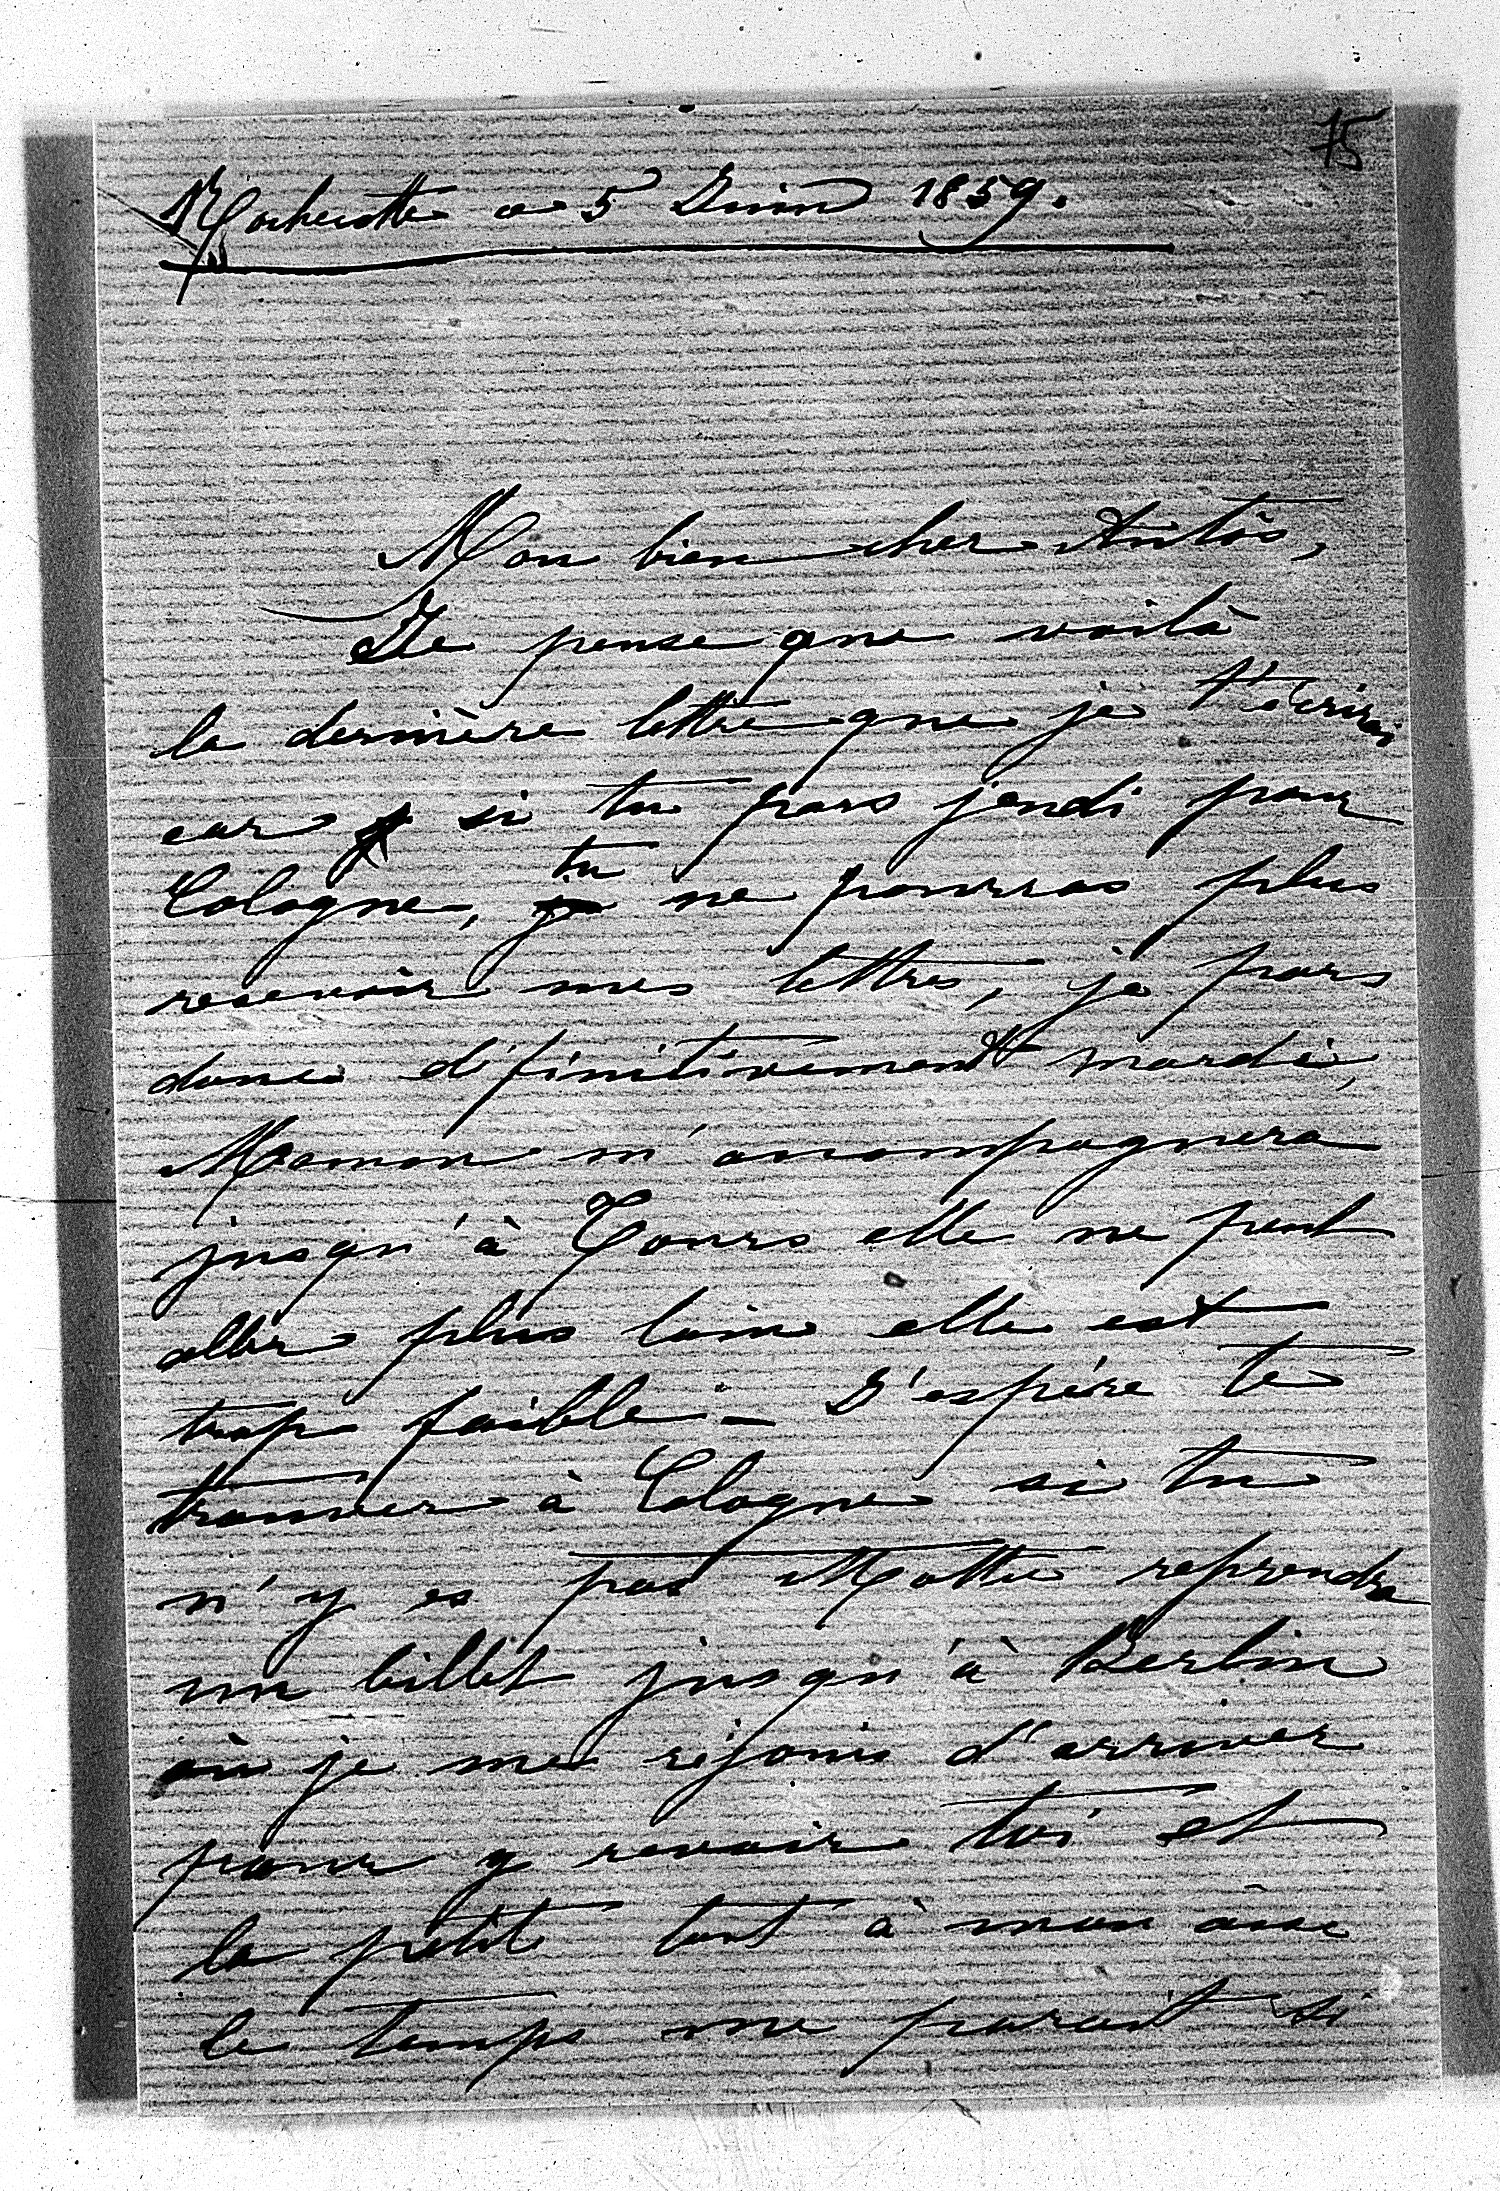 75
Rochecotte ce 5 Juin 1859.
Mon bien cher Antòs,
Je pense que voilà
la dernière lettre que je t'écrirai
car si tu pars jeudi pour
Cologne, tu ne pourras plus
recevoir mes lettres, je pars
donc définitivement mardi,
Maman m'accompagnera
jusqu'à Tours elle ne peut
aller plus loin elle est
trop faible. — J'espère te
trouver à Cologne si tu
n'y es pas reprendra
un billet jusqu'à Berlin
où je me réjouis d'arriver
pour y revoir toi et
la petit tout à mon aise
le temps me parait si